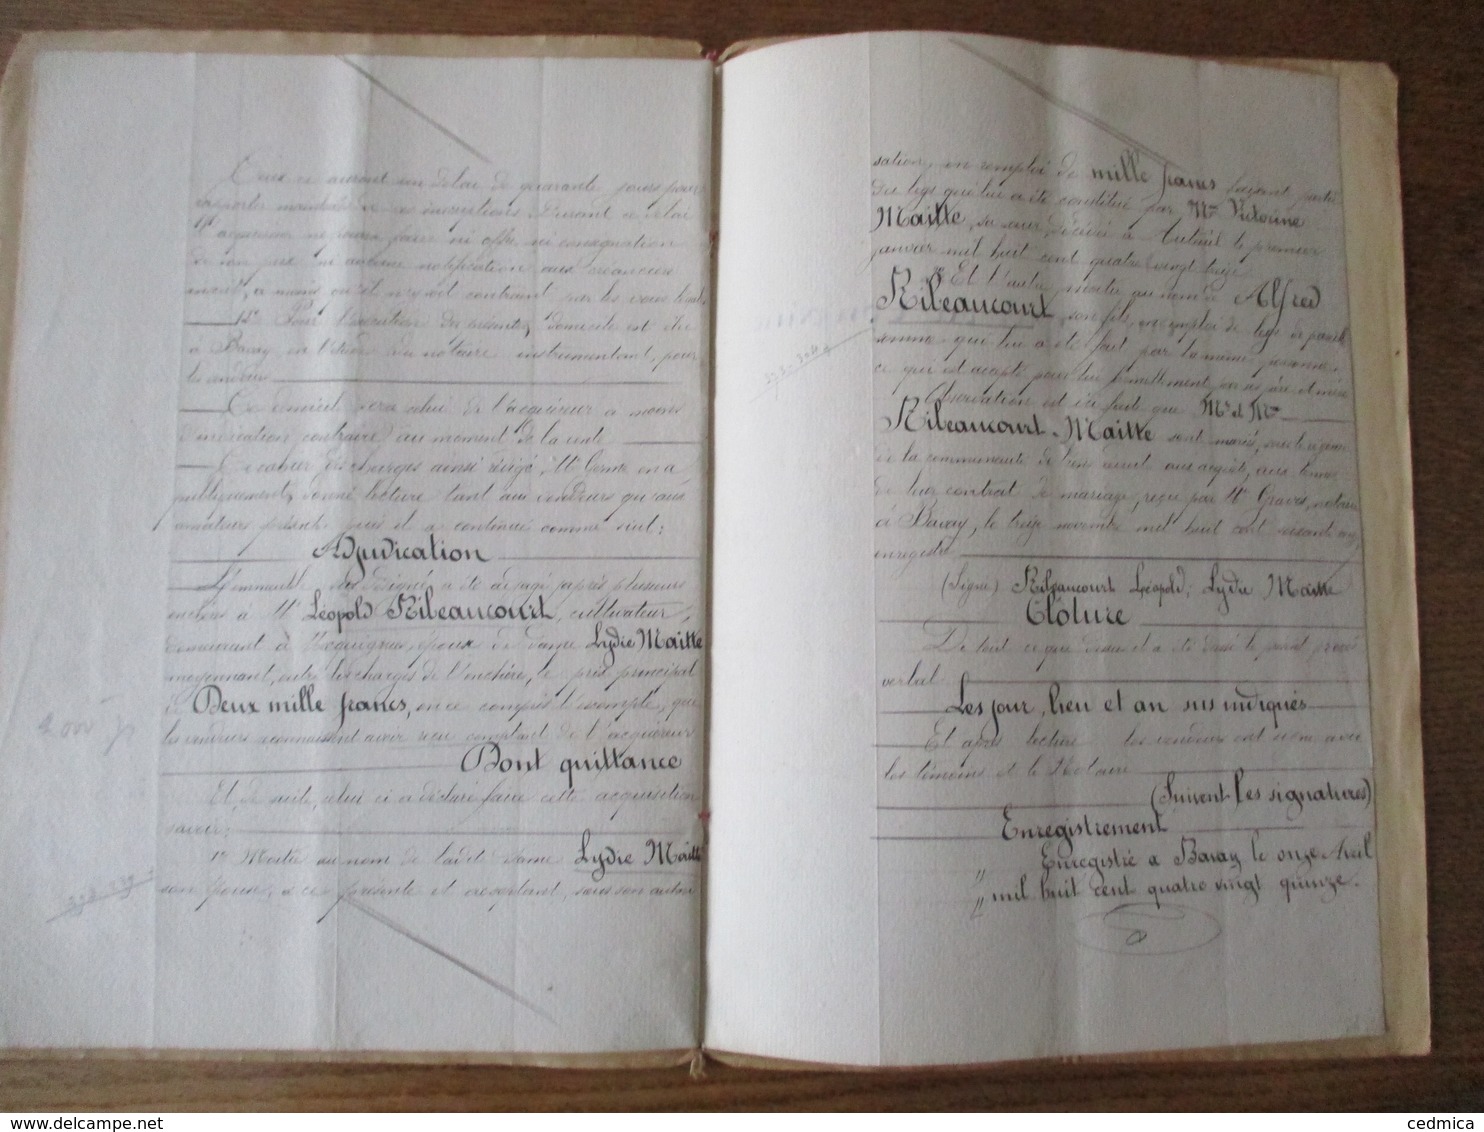 Ceux ci auront un délai de quarante jours pour
rapporter de ces inscriptions. Durant ce délai
l'acquéreur ne pourra faire ni offre ni consignation
de son prix ni aucune notification aux créanciers
à moins qu'il n'y soit contraint par les voies
12° Pour l'exécution des présentes, domicile est élu
à Bavay, en l'étude du notaire instrumentant, pour
les vendeurs
Ce domicile sera celui de l'acquéreur à moins
d'indication contraire au moment de la vente
Le cahier des charges ainsi rédigé, Mt en a
publiquement donné lecture tant aux vendeurs qu'aux
amateurs présents puis il a continué comme suit:
Adjudication
L'immeuble désigné a été adjugé après plusieurs
enchères à Mr Léopold Ribeaucourt, cultivateur,
demeurant à époux de dame Lydie Maitte
moyennant, outre les charges de l'enchère, le prix principal
Deux mille francs, en ce compris l'exempte, que
les vendeurs reconnaissent avoir reçu comptant de l'acquéreur
2000 f
Dont quittance
Et, de suite, celui ci a déclaré faire cette acquisition
savoir:
1° Moitié au nom de ladite dame Lydie Maitte
son épouse, à ce présente et acceptant, sous son autori
sation, en remploi de mille francs faisant partie
du legs qui lui a été constitué par Mme Victorine
Maitte, sa sœur, décédée à Auteuil le premier
janvier mil huit cent quatre vingt treize
2° Et l'autre moitié au nom de Alfred
Ribeaucourt, son fils, en remploi de legs de pareille
somme qui lui a été fait par la même personne,
ce qui est accepté pour lui formellement par ses père et mère
Observation est ici faite que Mr et Mme
Ribeaucourt-Maitte sont mariés, sous le régime
de la communauté de biens réduite aux acquêts, aux termes
de leur contrat de mariage, reçu par Mt Graves, notaire
à Bavay, le treize novembre mil huit cent soixante
enregistré
(Signé) Ribeaucourt Léopold, Lydie Maitte
Clôture
De tout ce que dessus il a été dressé le présent procès
verbal
Les jour, lieu et an sus indiqués
Et après lecture les vendeurs ont signé avec
les témoins et le Notaire
(Suivent les signatures)
Enregistrement
" Enregistré à Bavay le onze Avril
" mil huit cent quatre vingt quinze.
www.cedmica.com